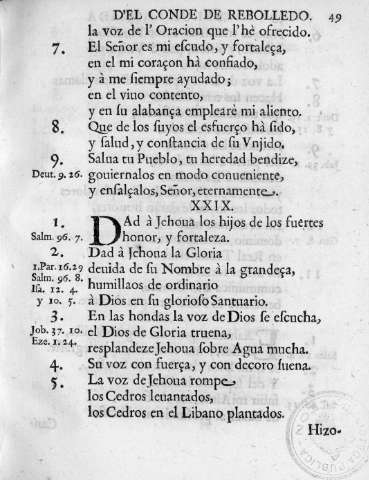 D'EL CONDE DE REBOLLEDO. 49
la voz de l' Oracion que l'hè ofrecido.
7. El Señor es mi eſcudo, y fortaleça,
en el mi coraçon hà confiado,
y à me ſiempre ayudado;
en el viuo contento,
y en ſu alabança emplearè mi aliento.
8. Que de los ſuyos el esfuerço hà ſido,
y ſalud, y conſtancia de ſu Vnjido.
9. Salua tu Pueblo, tu heredad bendize,
Deut. 9. 26. gouiernalos en modo conueniente,
y enſalçalos, Señor, eternamente.
XXIX.
1. DAd à Jehoua los hijos de los fuertes
Salm. 96. 7. honor, y fortaleza.
2. Dad à Jehona la Gloria
1.Par. 16.29 deuida de ſu Nombre à la grandeça,
Salm. 96. 8. humillaos de ordinario
Iſa. 12. 4.
y 10. 5. à Dios en ſu glorioſo Santuario.
3. En las hondas la voz de Dios ſe eſcucha,
Job. 37. 10. el Dios de Gloria truena,
Eze. 1. 24. resplandeze Jehoua ſobre Agua mucha.
4. Su voz con fuerça, y con decoro ſuena.
5. La voz de Jehoua rompe
los Cedros leuantados,
los Cedros en el Libano plantados.
Hizo-